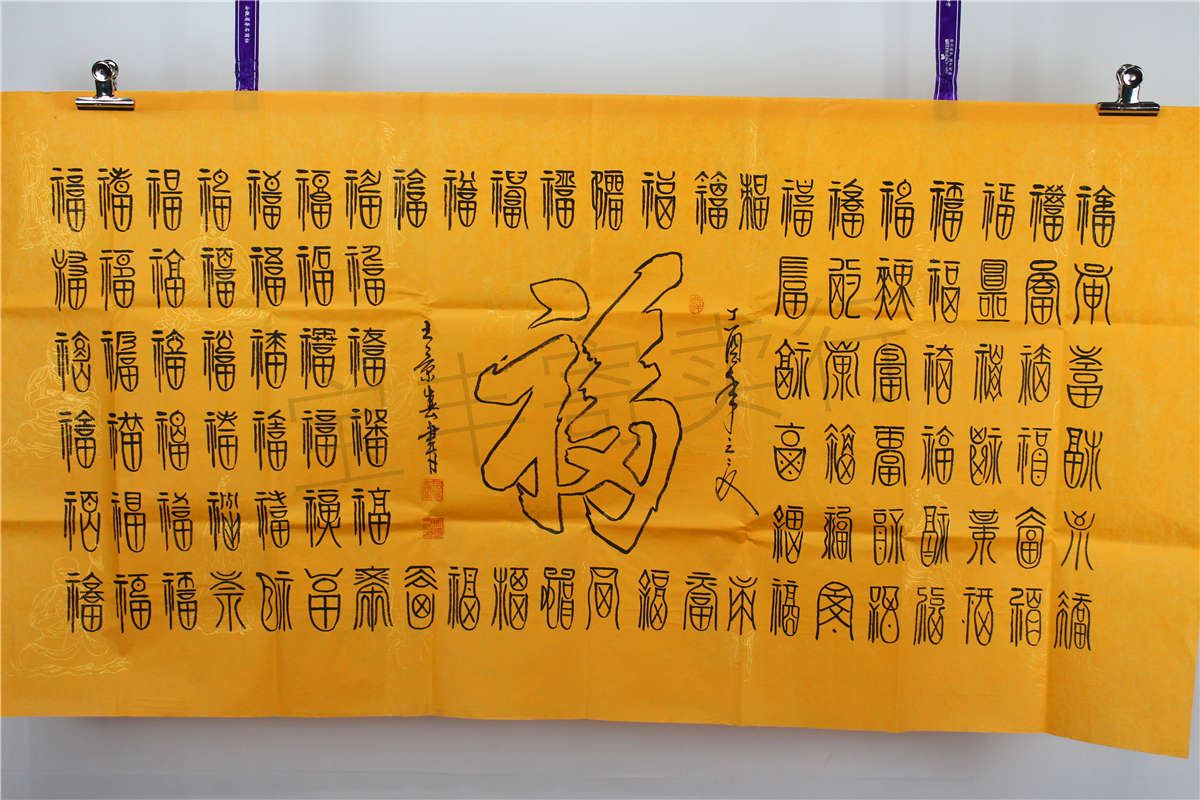 福福福福福福福福福福福福福福福福福福福福福福
福福福福福福福
福福福福福福福
福福福福福福福
福福福福福福福
福福福福福福福
福福福福福福福
福福福福福福福
福福福福福福福
福福福福福福福福福福福福福福福福福福福福福福
福
丁酉年之
王景
宝丰寄卖行